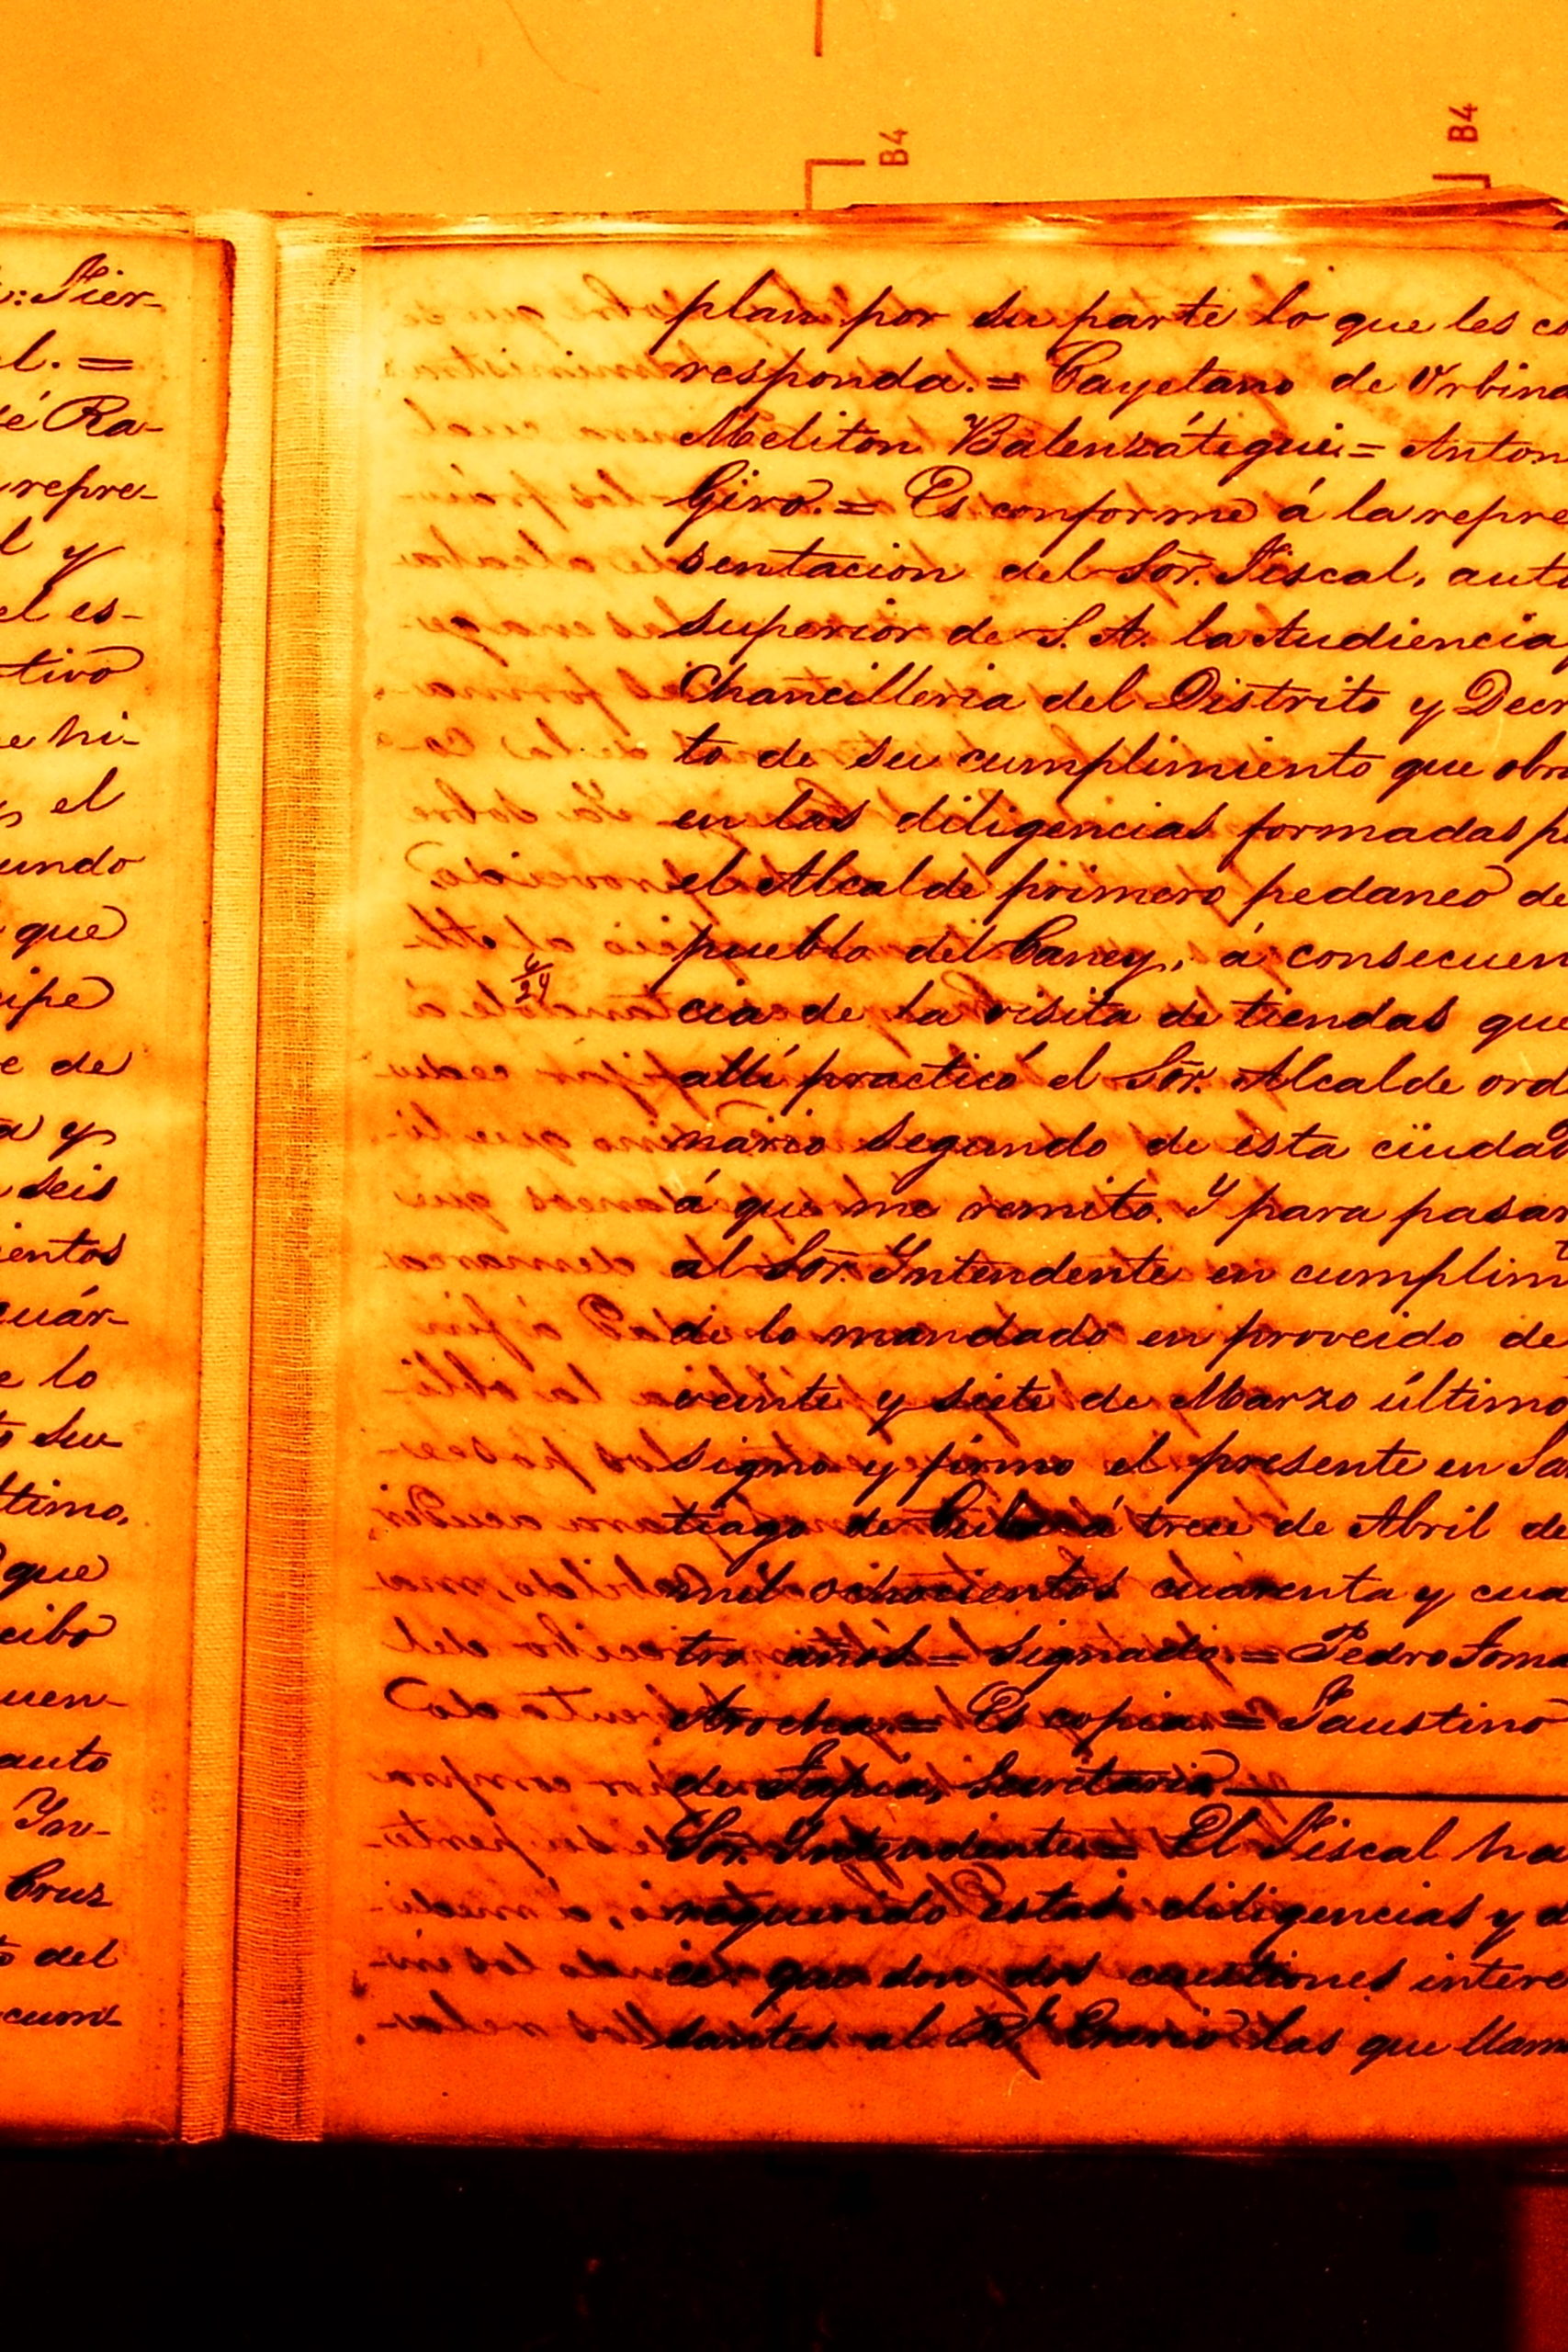 B4
B4
: Sier-
l. =
é Ra-
repre-
l y
el es-
tivo
e hi-
el
undo
que
cipe
e de
a y
seis
ientos
cuár-
e lo
o su
ltimo,
que
cibo
uen-
auto
Yn-
Cruz
o del
cum
plan por su parte lo que les co
responda. = Cayetano de Urbina
Meliton Balenzátegui = Anton
Giro. = Es conforme á la repre
sentacion del Sor. Fiscal, auto
superior de S. A. la Audiencia
Chancilleria del Distrito y Decr
to de su cumplimiento que obra
en las diligencias formadas p
el Alcalde primero pedaneo de
pueblo del Caney, á consecuen
cia de la visita de tiendas que
allí practicó el Sor. Alcalde ord
nario segundo de esta ciudad
á que me remito. Y para pasar
al Sor. Yntendente en cumplim
de lo mandado en proveido de
veinte y siete de Marzo último
signo y firmo el presente en Sa
tiago de Cuba á trece de Abril de
mil ochocientos cuarenta y cua
tro años = Signado = Pedro Toma
Arocha = Es copia = Faustino
de Tapia, Secretario
Sor. Yntendente = El Fiscal ha
requerido estas diligencias y
ce que son dos cuestiones intere
santes al Rl. Erario las que llam